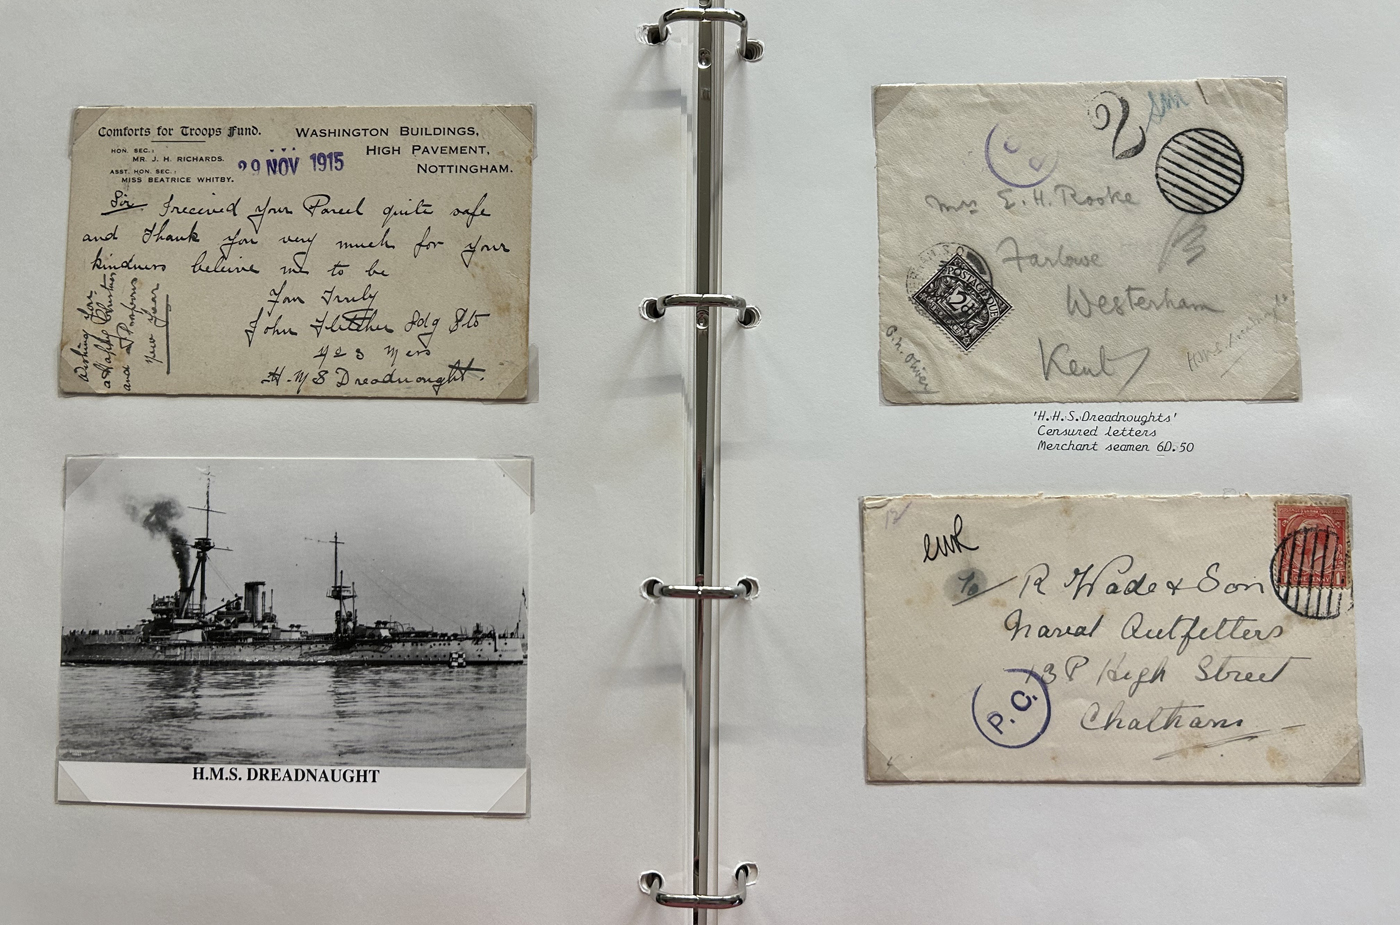 Comforts for Troops Fund.
HON. SEC.:
MR. J. H. RICHARDS.
ASST. HON. SEC.:
MISS BEATRICE WHITBY.
WASHINGTON BUILDINGS,
HIGH PAVEMENT,
NOTTINGHAM.
29 NOV 1915
Sir I received your Parcel quite safe
and thank you very much for your
kindness beleive me to be
Your Truly
John Fletcher Ldg Sto
423 Mess
H.M.S Dreadnought.
Wishing you
a Happy Christmas
and a Prosperous
New Year
H.M.S. DREADNAUGHT
2
Mrs E. H. Rooke
Farlowe
Westerham
Kent
POSTAGE DUE
2D
'H.H.S.Dreadnoughts'
Censured letters
Merchant seamen 6D.50
12
EWR
To R Wade & Son
Naval Outfetters
13P High Street
Chatham
P.C.
ONE PENNY